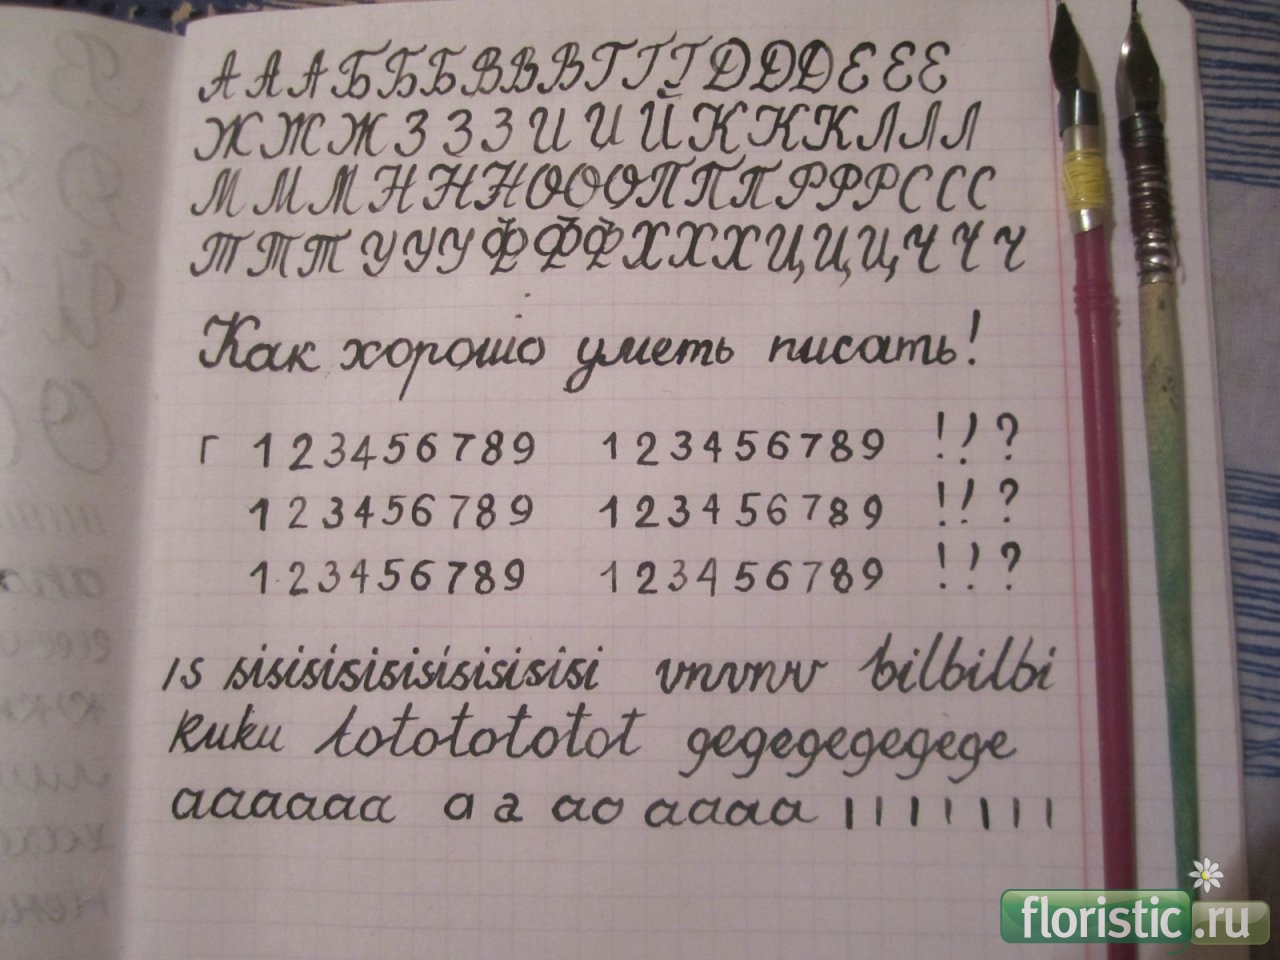 А А А Б Б Б В В В Г Г Г Д Д Д Е Е Е
Ж Ж Ж З З З И И Й К К К Л Л Л
М М М Н Н Н О О О П П П Р Р Р С С С
Т Т Т У У У Ф Ф Ф Х Х Х Ц Ц Ц Ч Ч Ч
Как хорошо уметь писать!
г 1 2 3 4 5 6 7 8 9 1 2 3 4 5 6 7 8 9 ! ! ?
1 2 3 4 5 6 7 8 9 1 2 3 4 5 6 7 8 9 ! ! ?
1 2 3 4 5 6 7 8 9 1 2 3 4 5 6 7 8 9 ! ! ?
ıs sisisisisisisisisisi vnvnv bilbilbi
kuku totototototot gegegegegege
aaaaaaa a a ao aaaa | | | | | | | |
floristic.ru